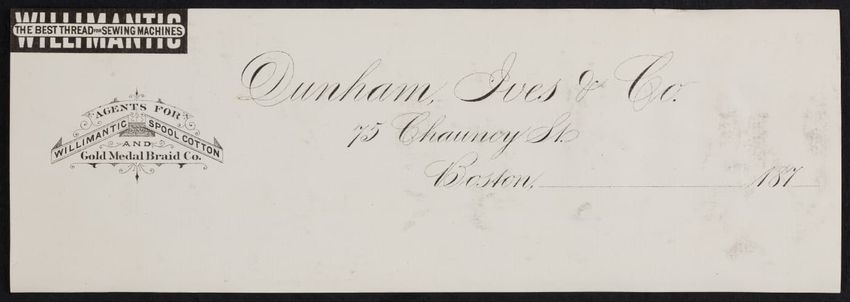 WILLIMANTIC
THE BEST THREAD FOR SEWING MACHINES
AGENTS FOR
WILLIMANTIC SPOOL COTTON
AND
Gold Medal Braid Co.
Dunham, Ives & Co.
75 Chauncy St.
Boston, 187